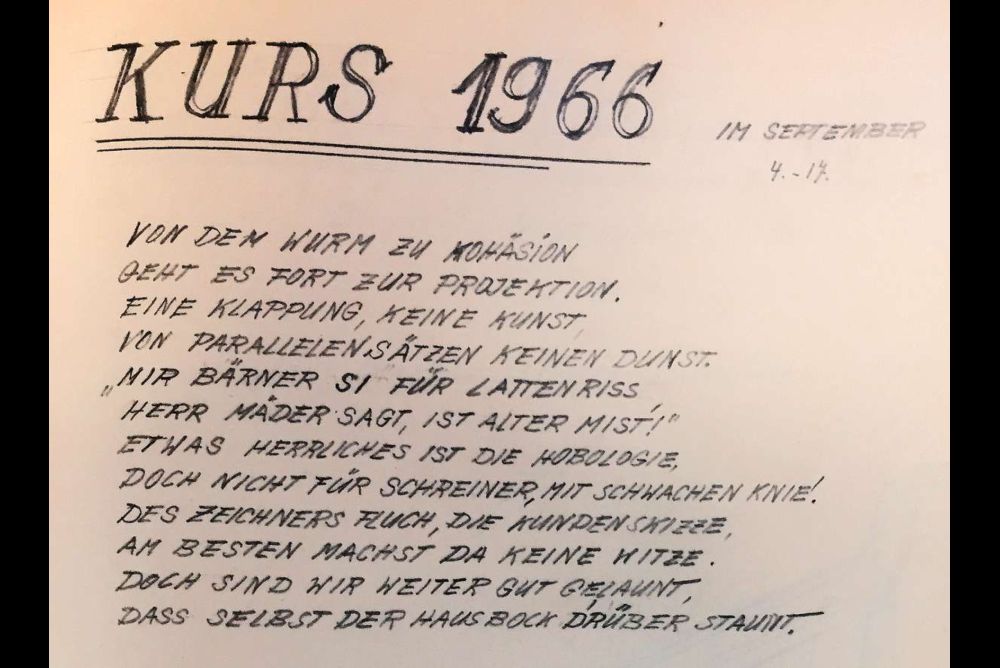 KURS 1966
IM SEPTEMBER
4.-17.
VON DEM WURM ZU KOHÄSION
GEHT ES FORT ZUR PROJEKTION.
EINE KLAPPUNG, KEINE KUNST,
VON PARALLELENSÄTZEN KEINEN DUNST.
„MIR BÄRNER SI FÜR LATTENRISS,
HERR MÄDER SAGT, IST ALTER MIST!"
ETWAS HERRLICHES IST DIE HOBOLOGIE,
DOCH NICHT FÜR SCHREINER, MIT SCHWACHEN KNIE!
DES ZEICHNERS FLUCH, DIE KUNDENSKIZZE,
AM BESTEN MACHST DA KEINE WITZE.
DOCH SIND WIR WEITER GUT GELAUNT,
DASS SELBST DER HAUSBOCK DRÜBER STAUNT.